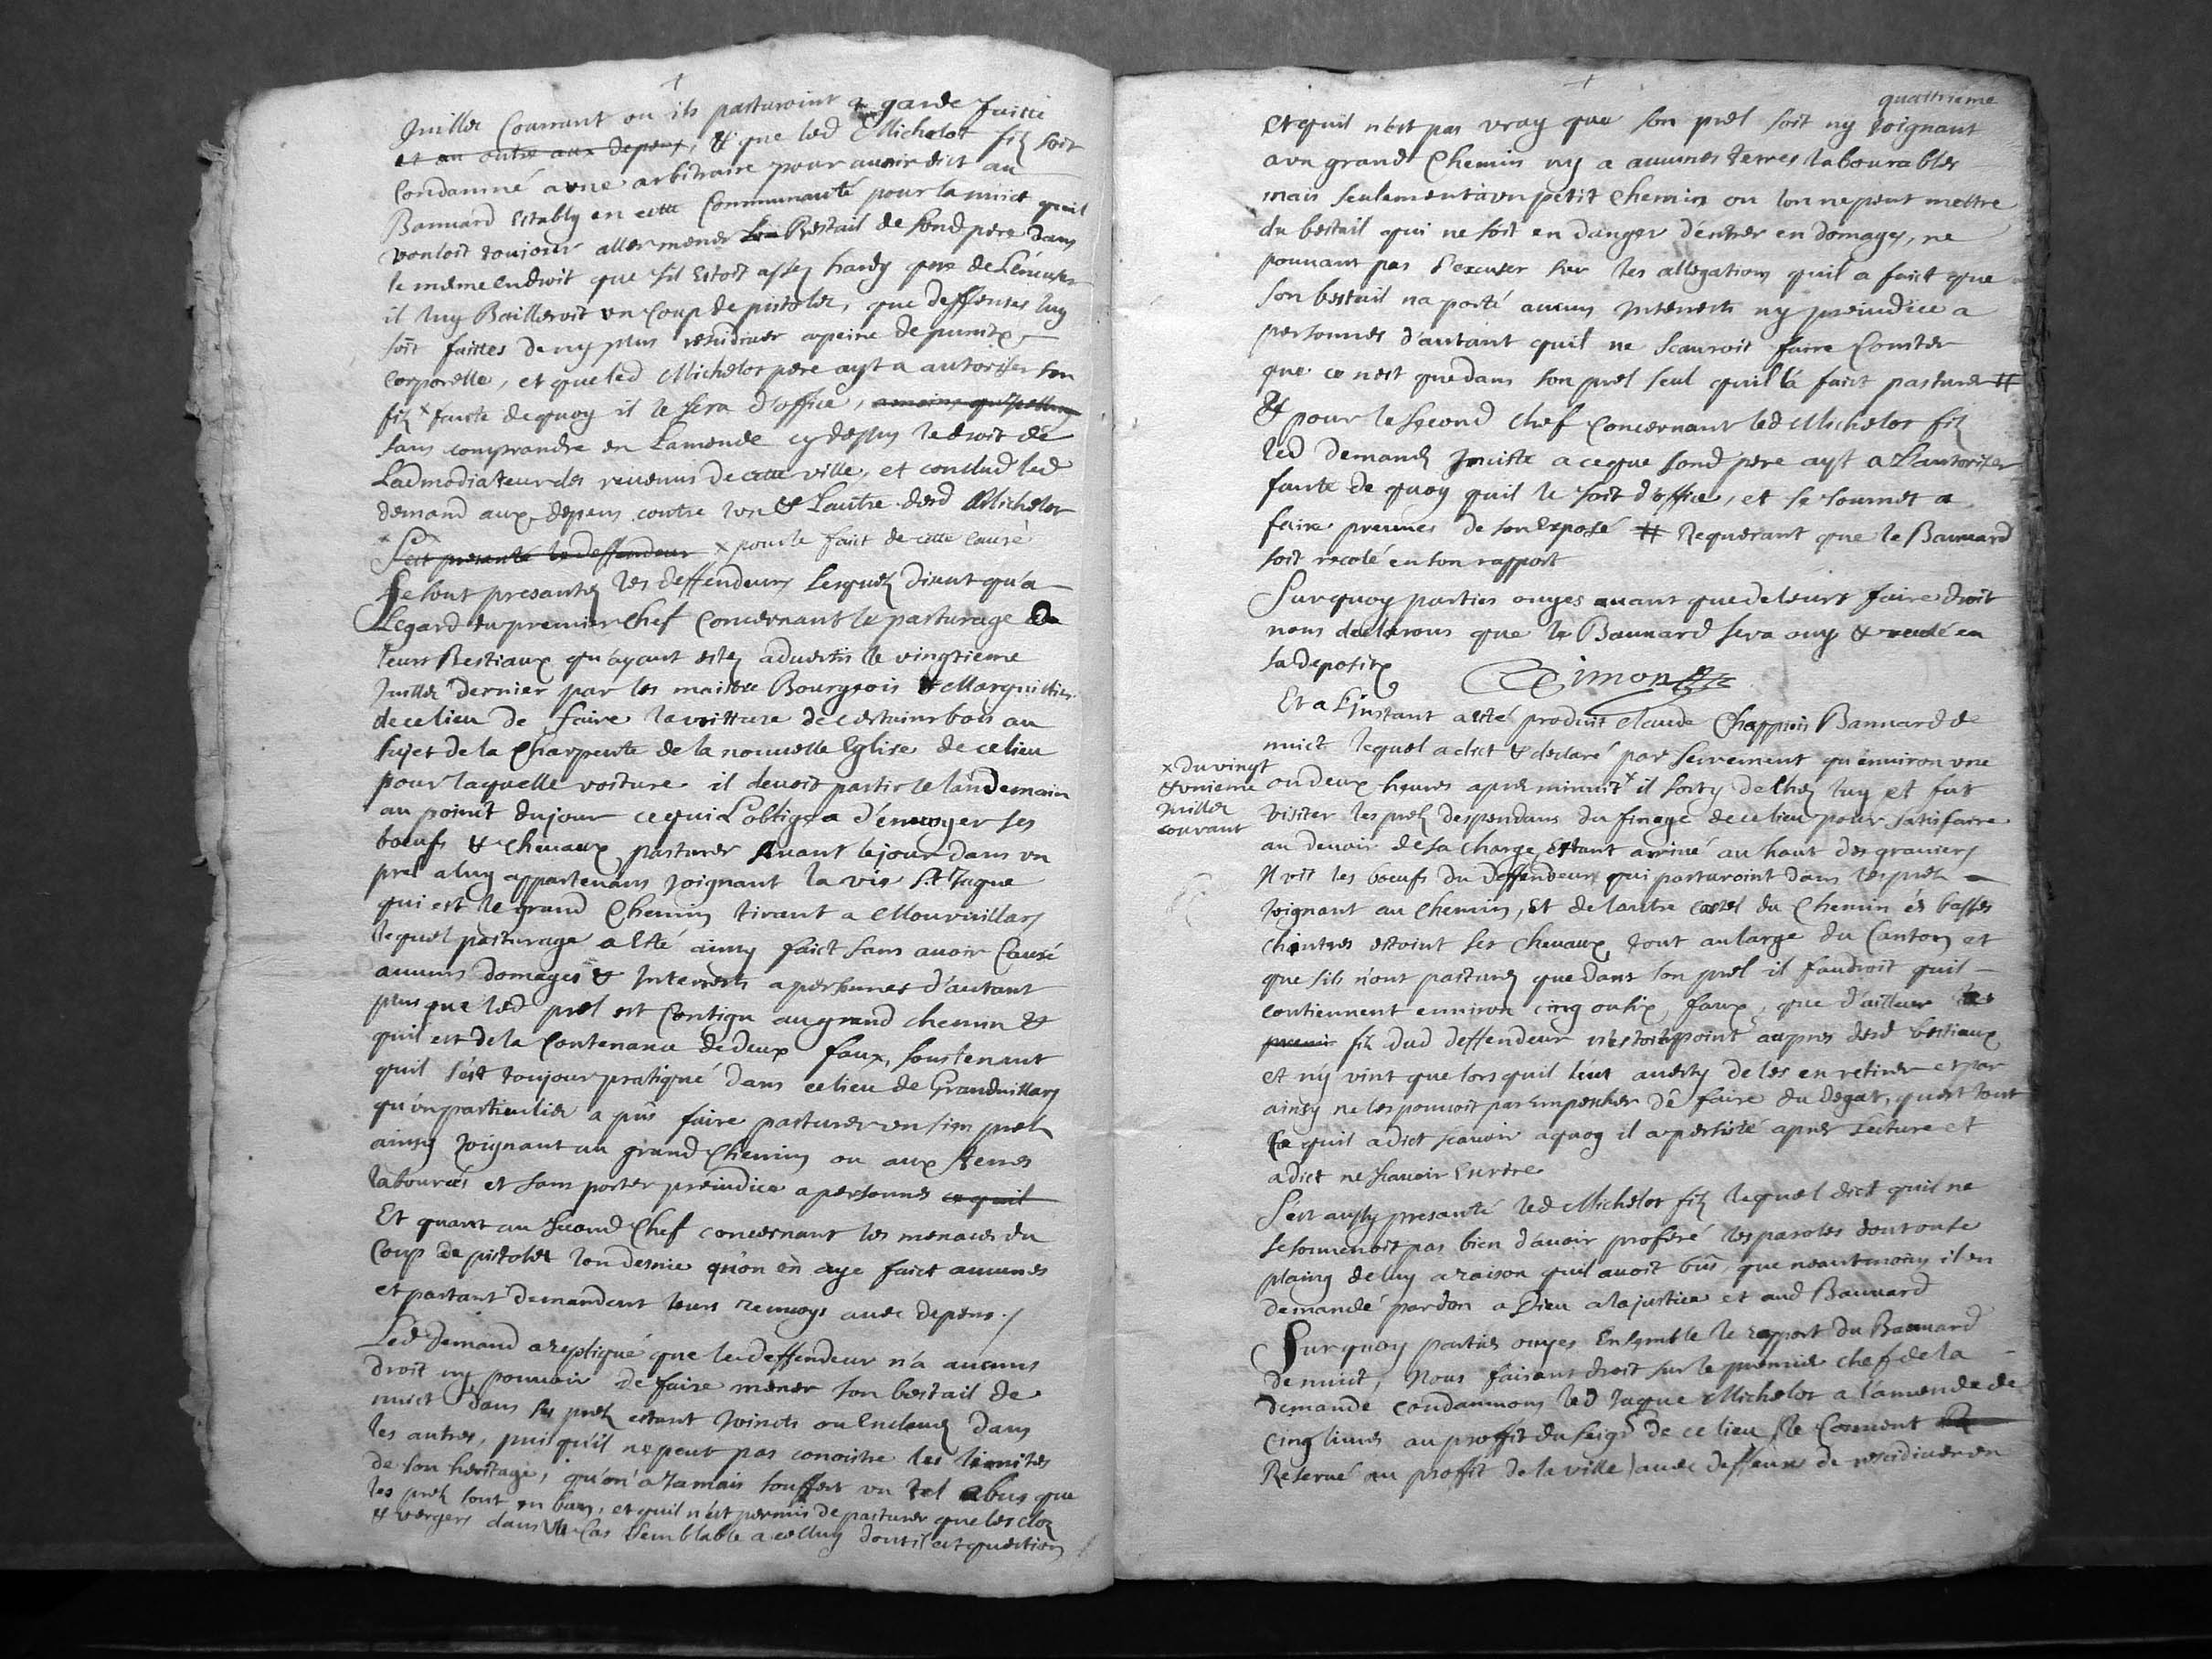 Juillet Courrant ou ils pasturoint a garde faitte
et en outre aux depens, & que led Michelot filz soit
Condamné a une arbitraire pour avoir dict au
Bannard estably en cette Communauté pour la nuict quil
vouloit toujour aller mener le Bestail de sond pere dans
le meme endroit que sil estoit assez hardy que de
il luy Bailleroit un Coup de pistolet, que deffenses luy
soit faittes de ny plus residiver a peine de punitõn
corporelle, et que led Michelot pere ayt a autoriser son
filz x faute de quoy il le sera d'office,
sans comprandre en Lamende cy dessus le droit de
Ladmodiateur des revenus de cette ville, et conclud led
demand aux depens contre lun & Lautre desd Michelot
Sest presanté le deffendeur x pour le faict de cette cause
Se sont presantez les deffendeurs Lesquelz disent qu'a
Legard du premier Chef Concernant le pasturage de
leurs Bestiaux qu'ayant estez advertis le vingtieme
Juillet dernier par les maistre Bourgeois & Marguillier
de ce lieu de faire la voitture de certains bois au
sujet de la Charpente de la nouvelle Eglise de ce lieu
pour laquelle voiture il devoit partir le landemain
au point du jour ce qui L'obligea d'envoyer ses
boeufs & chevaux pasturer avant le jour dans un
prel a luy appartenans joignant la vie St Jaque
qui est le grand Chemin tirant a Mouvvillars
lequel pasturage a esté ainsy faict sans avoir Causé
aucuns domages & Interrests a personnes d'autant
plus que led prel est Contigu au grand chemin &
quil est de la Contenance de deux faux, soustenant
quil s'est toujour pratiqué dans ce lieu de Grandvillars
qu'un particulier a pus faire pasturer un sien prel
ainsy joignant au grand Chemin ou aux terres
labourées et sans porter preiudice a personnes ce quil
Et quant au second Chef concernant les menaces du
Coup de pistolet lon desnie qu'on en aye faict aucunes
et partant demandent leurs renvoys avec depens ./
Led demand a repliqué que led deffendeur n'a aucuns
droit ny pouvoir de faire mener son bestail de
nuict dans ses prelz estant joincts ou Enclavez dans
les autres, puis qu'il ne peut pas conoistre les limites
de son heritage, qu'on a Jamais souffert un tel abus que
les prelz sont en ban, et quil n'est permis de pasturer que les cloz
& vergers dans un Cas semblable a celluy dont il est question
quattrieme
et quil n'est pas vray que son prel soit ny joignant
a un grand Chemin ny a aucunes terres labourables
mais seulement a un petit chemin ou lon ne peut mettre
du bestail qui ne soit en danger d'entrer en domages, ne
pouvant pas s'excuser sur les allegations quil a faict que
son bestail na porté aucuns Interrests ny preiudice a
personnes d'autant quil ne scauroit faire Conster
que ce nest que dans son prel seul quil la faict pasturer #
& pour le second chef Concernant led Michelot filz
led demandr Insiste a ce que sond pere ayt a L'autoriser
faute de quoy quil le soit d'office, et se soumet a
faire preuves de son Exposé # Requerant que le Bannard
soit recolé en son rapport
Surquoy parties ouyes avant que de leurs faire droit
nous declarons que le Bannard sera ouy & recolé en
sa depositõn
Simon
Et a L'instant a esté produit Claude Chappuis Bannard de
nuict lequel a dict & declaré par serrement qu'environ une
ou deux heures apres minuit x il sorty de chez luy et fut
x du vingt
& unieme
Juillet
courant
visiter les prelz despendans du finage de ce lieu pour satisfaire
au devoir de sa charge, Estant arrivé au haut des graviers
Il vit les boeufs du deffendeur qui pasturoint dans les prelz
joignant au Chemin, et de lautre costel du Chemin és basses
chaintres estoint ses chevaux tout au large du Canton et
que sils n'ont pasturez que dans son prel il faudroit quil
contiennent environ cinq ou six faux, que d'ailleur le
filz dud deffendeur n'estoit point aupres desd bestiaux
et n'y vint que lors quil l'eut averty de les en retirer et par
ainsy ne les pouvoit pas empescher de faire du degat, quest tout
ce quil a dict scavoir a quoy il a persisté apres lecture et
a dict ne scavoir Escrire
S'est aussy presanté led Michelot filz lequel dict quil ne
se souvenoit pas bien d'avoir proferé les paroles dont on se
plaing de luy a raison quil avoit bus, que neantmoins il en
demande pardon a Dieu a la justice et aud Bannard
Surquoy parties ouyes Ensemble le rapport du Bannard
de nuict, Nous faisant droit sur le premier chef de la
demande condamnons led Jaque Michelot a l'amende de
Cinq livres au proffit du seigr de ce lieu (le Couvent
Reservé au proffit de la ville) avec deffense de rescidiver en